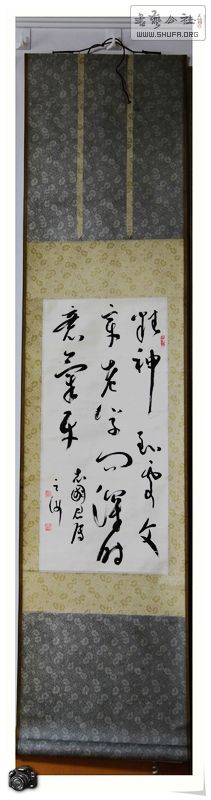 书艺公社
WWW.SHUFA.ORG
精神到處文
章老學問深時
意氣平